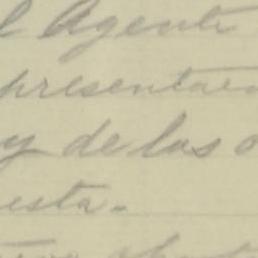 l Agente
presentaci
y de las o
esta.